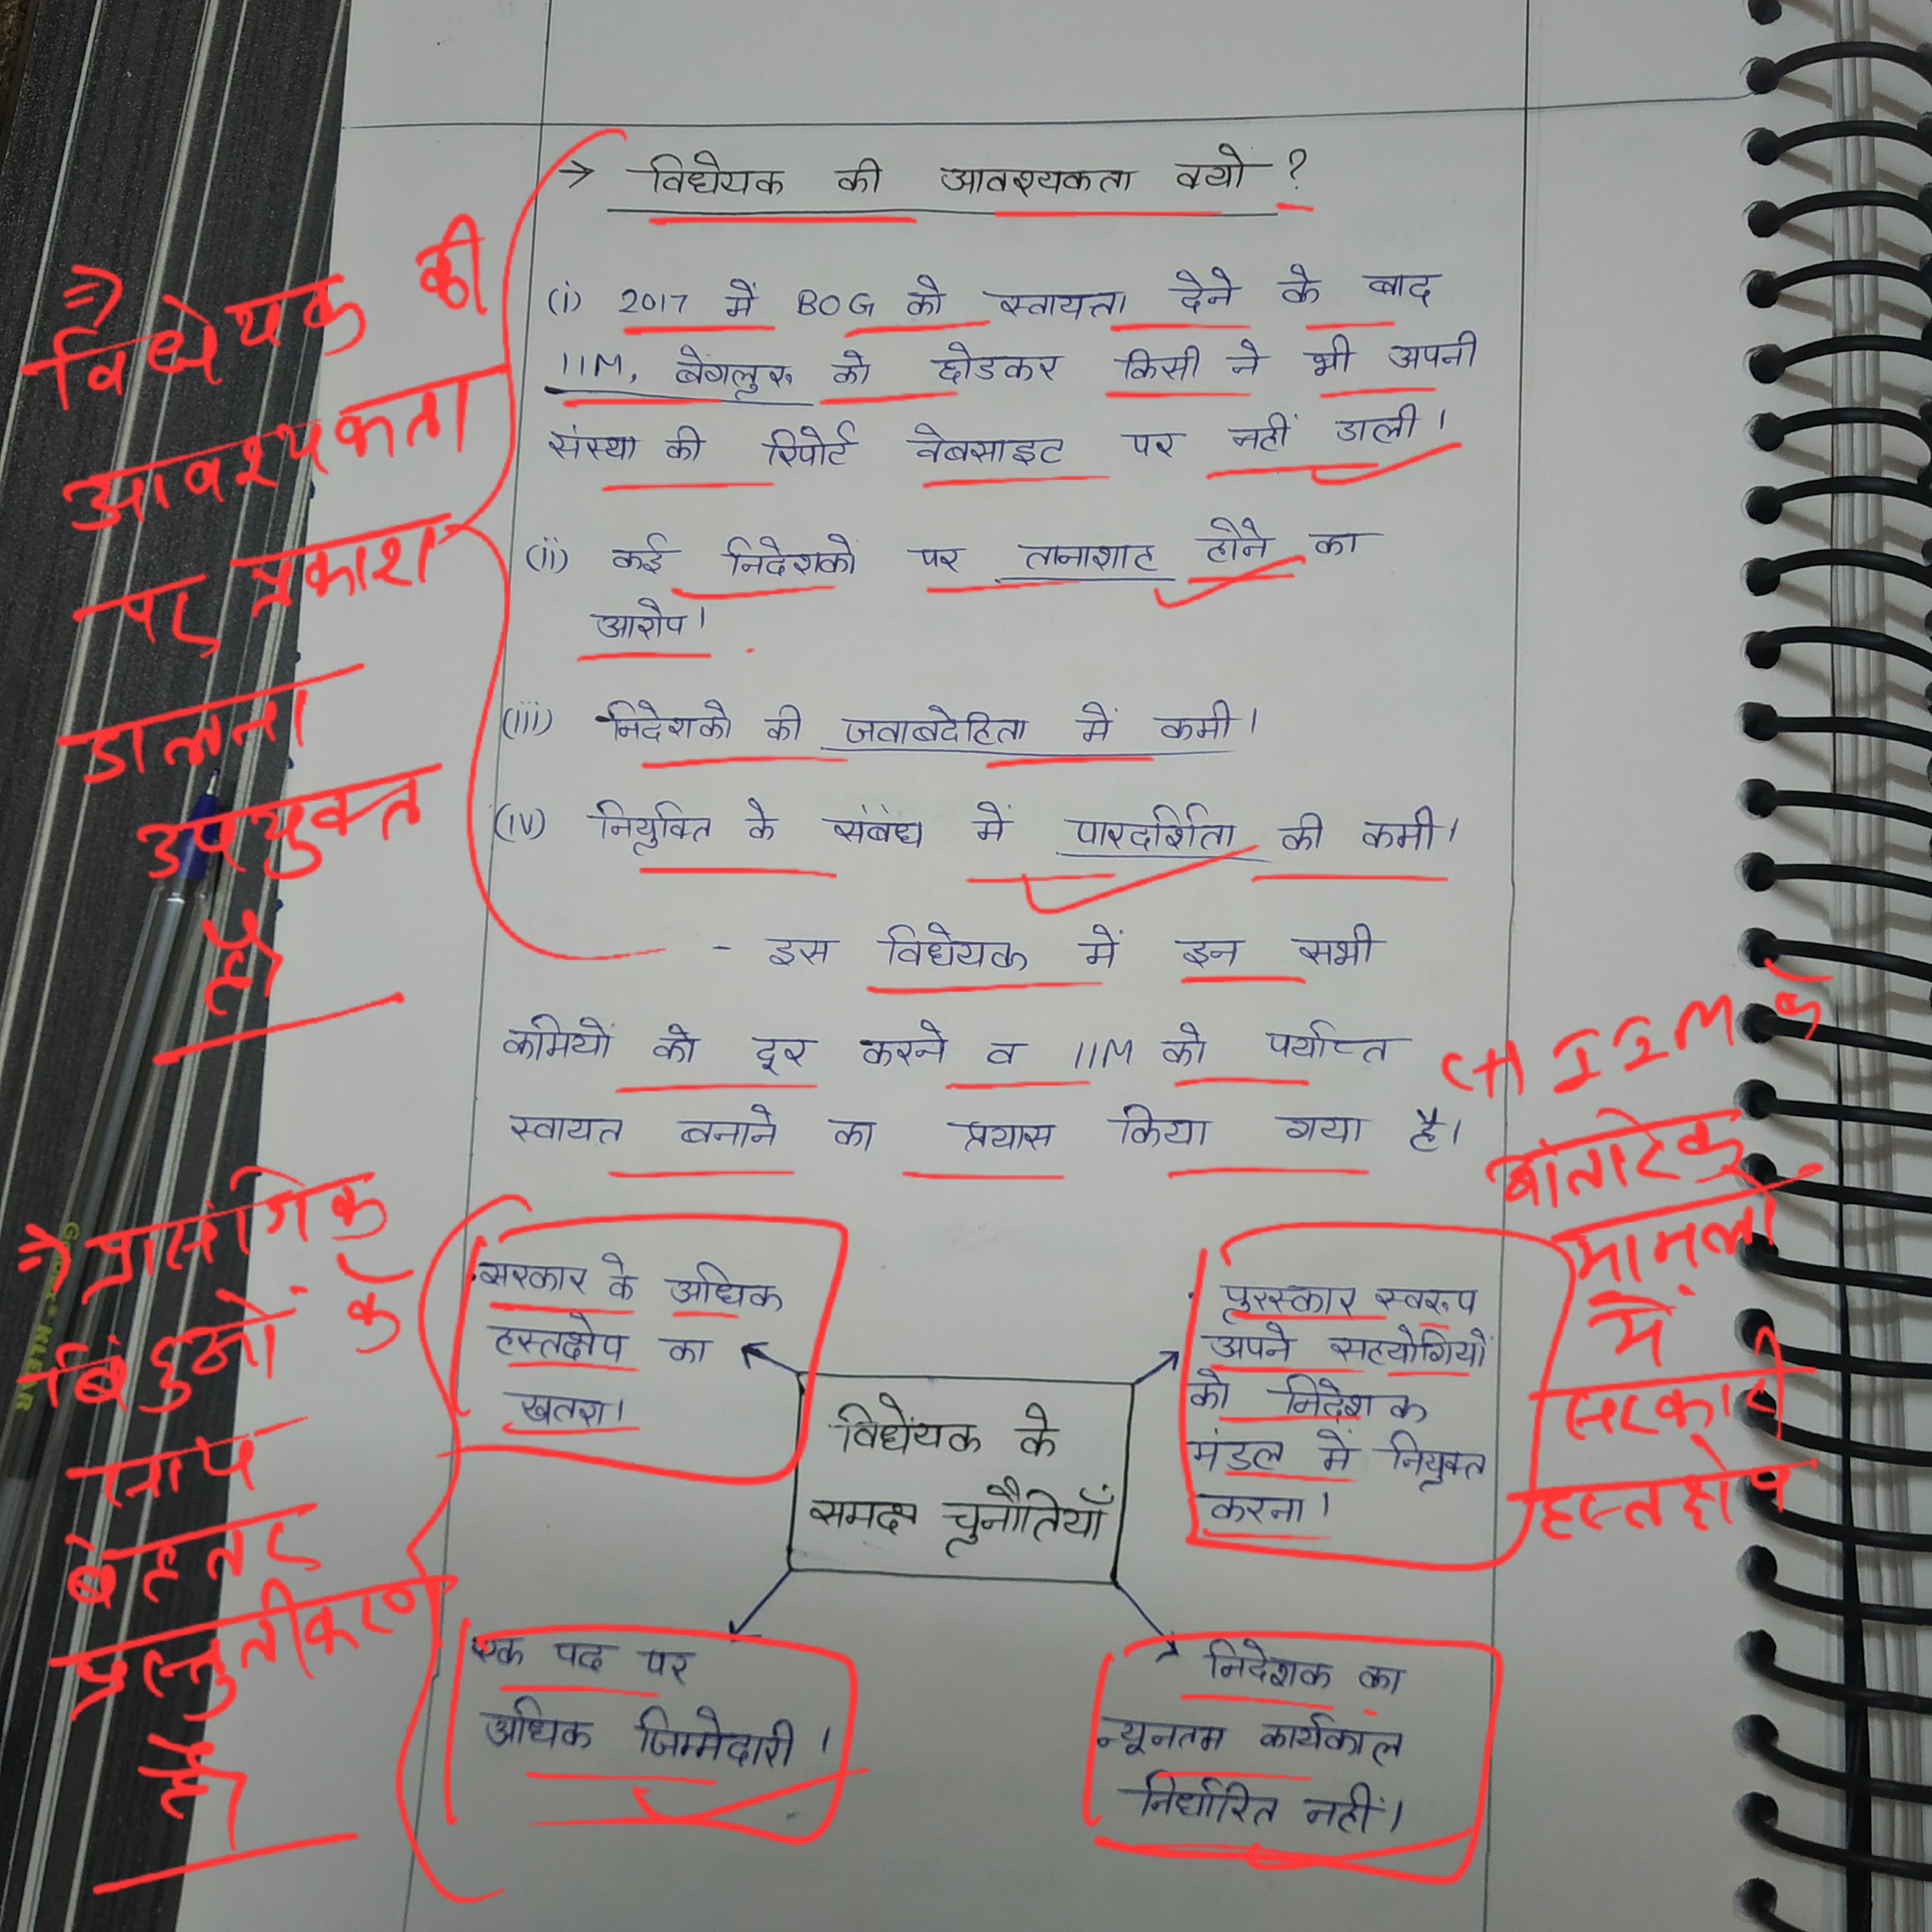 → विधेयक की आवश्यकता क्यो ?
(i) 2017 में BOG को स्वायत्ता देने के बाद
IIM, बेंगलुरु को छोडकर किसी ने भी अपनी
संस्था की रिपोर्ट वेबसाइट पर नहीं डाली।
(ii) कई निदेशको पर तानाशाह होने का
आरोप।
(iii) निदेशको की जवाबदेहिता में कमी।
(iv) नियुक्ति के संबंध में पारदर्शिता की कमी।
- इस विधेयक में इन सभी
कमियों को दूर करने व IIM को पर्याप्त
स्वायत बनाने का प्रयास किया गया है।
⇒
विधेयक की
आवश्यकता
पर प्रकाश
डालना
उपयुक्त
है।
सरकार के अधिक
हस्तक्षेप का
खतरा।
पुरस्कार स्वरुप
अपने सहयोगियों
को निदेशक
मंडल में नियुक्त
करना।
विधेंयक के
समक्ष चुनौतियाँ
एक पद पर
अधिक जिम्मेदारी।
निदेशक का
न्यूनतम कार्यकाल
निर्धारित नहीं।
⇒ प्रासंगिक
बिंदुओं के
साथ
बेहतर
प्रस्तुतीकरण
है।
IIM के
आंतरिक
मामलों
में
सरकारी
हस्तक्षेप